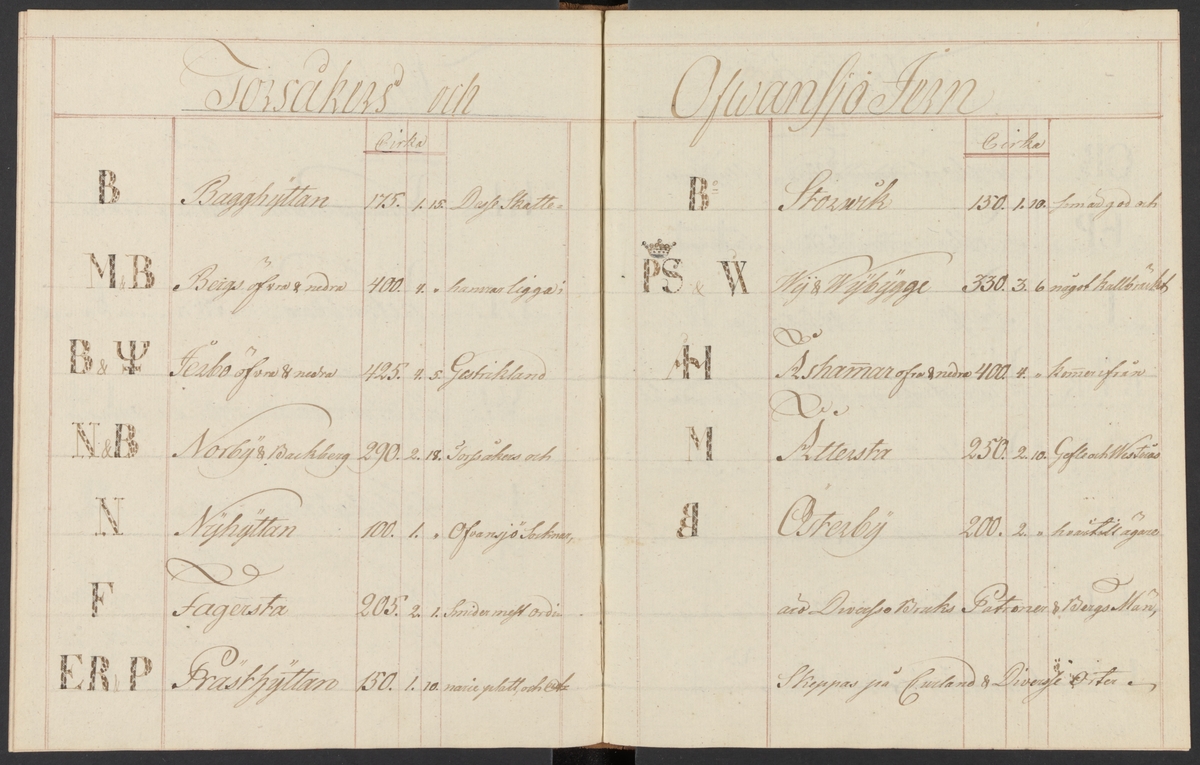 Torsåkers och
Cirka
B Bagghÿttan 175. 1. 15. Desse Skatte=
M.B Bergs öfvra & nedra 400. 4. " hamrar ligga i
B & Ψ Jerbo öfvra & nedra 425. 4. 5. Gestrikland
N & B Norbÿ & Backberg 290. 2. 18. Torsåkers och
N Nÿhÿttan 100. 1. " Ofvansjö Socknar,
F Fagersta 205. 2. 1. Smider mest ordi=
ER P Prästhÿttan 150. 1. 10. narie platt, och
Ofwansjö Jern
Cirka
B Storwik 150. 1. 10. god och
PS & W Wÿ & Wÿbÿgge 330. 3. 6 något kallbräckt
H Åshammar ofra & nedra 400. 4. " kommer ifrån
M Åttersta 250. 2. 10. Gefle och Westerås
B Österbÿ 200. 2. " ägare
äro Diverse Bruks Patroner & Bergs Män,
Skeppas på Curland & Diverse Orter